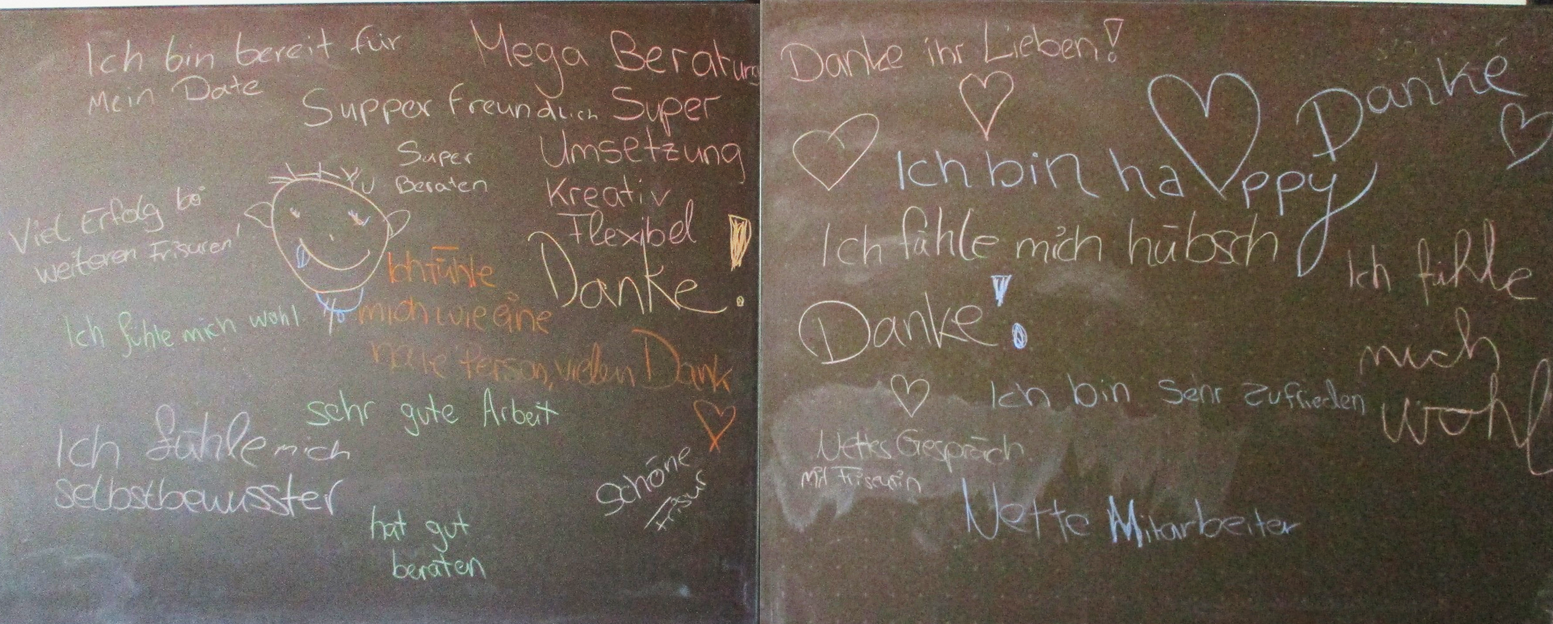 Ich bin bereit für
Mein Date
Mega Beratung
Supper Freundlich
Super
Umsetzung
Kreativ
Flexibel
Super
Beraten
Viel Erfolg bei
weiteren Frisuren!
Danke!
Ich fühle
mich wie eine
neue Person, vielen Dank
Ich fühle mich wohl
sehr gute Arbeit
Ich fühle mich
selbstbewusster
schöne
Frisur
hat gut
beraten
Danke ihr Lieben!
Danke
Ich bin happy
Ich fühle mich hübsch
Ich fühle
mich
wohl
Danke!
Ich bin sehr zufrieden
Nettes Gespräch
mit Friseurin
Nette Mitarbeiter